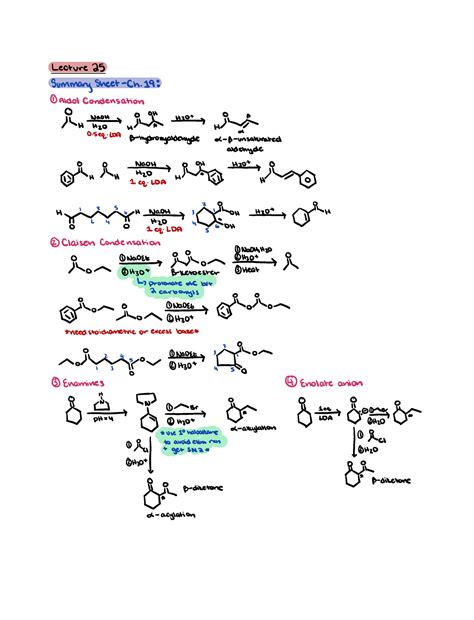 Lecture 25
Summary Sheet - Ch. 19:
① Aldol Condensation
NaOH
H₂O
0.5 eq. LDA
H₃O⁺
β-hydroxyaldehyde
α-β-unsaturated
aldehyde
NaOH
H₂O
1 eq. LDA
H₃O⁺
NaOH
H₂O
1 eq. LDA
H₃O⁺
② Claisen Condensation
① NaOEt
② H₃O⁺
β-ketoester
① NaOH, H₂O
② H₃O⁺
③ Heat
↳ protonate αC btt
2 carbonyls
① NaOEt
② H₃O⁺
*need stoichiometric or excess base*
① NaOEt
② H₃O⁺
③ Enamines
④ Enolate anion
pH=4
① Br
② H₃O⁺
α-alkylation
*use 1° haloalkane
to avoid elim rxn
+ get SN2*
① Cl
② H₃O⁺
β-diketone
α-acylation
1 eq.
LDA
② H₂O
① Cl
② H₂O
β-diketone